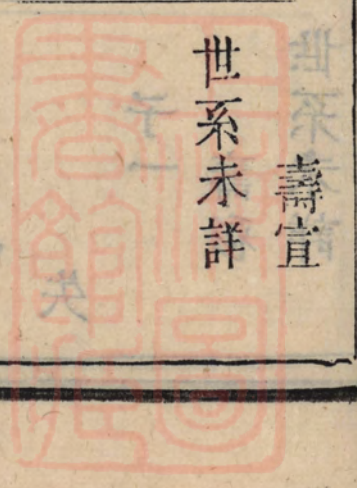 壽宣
世系未詳